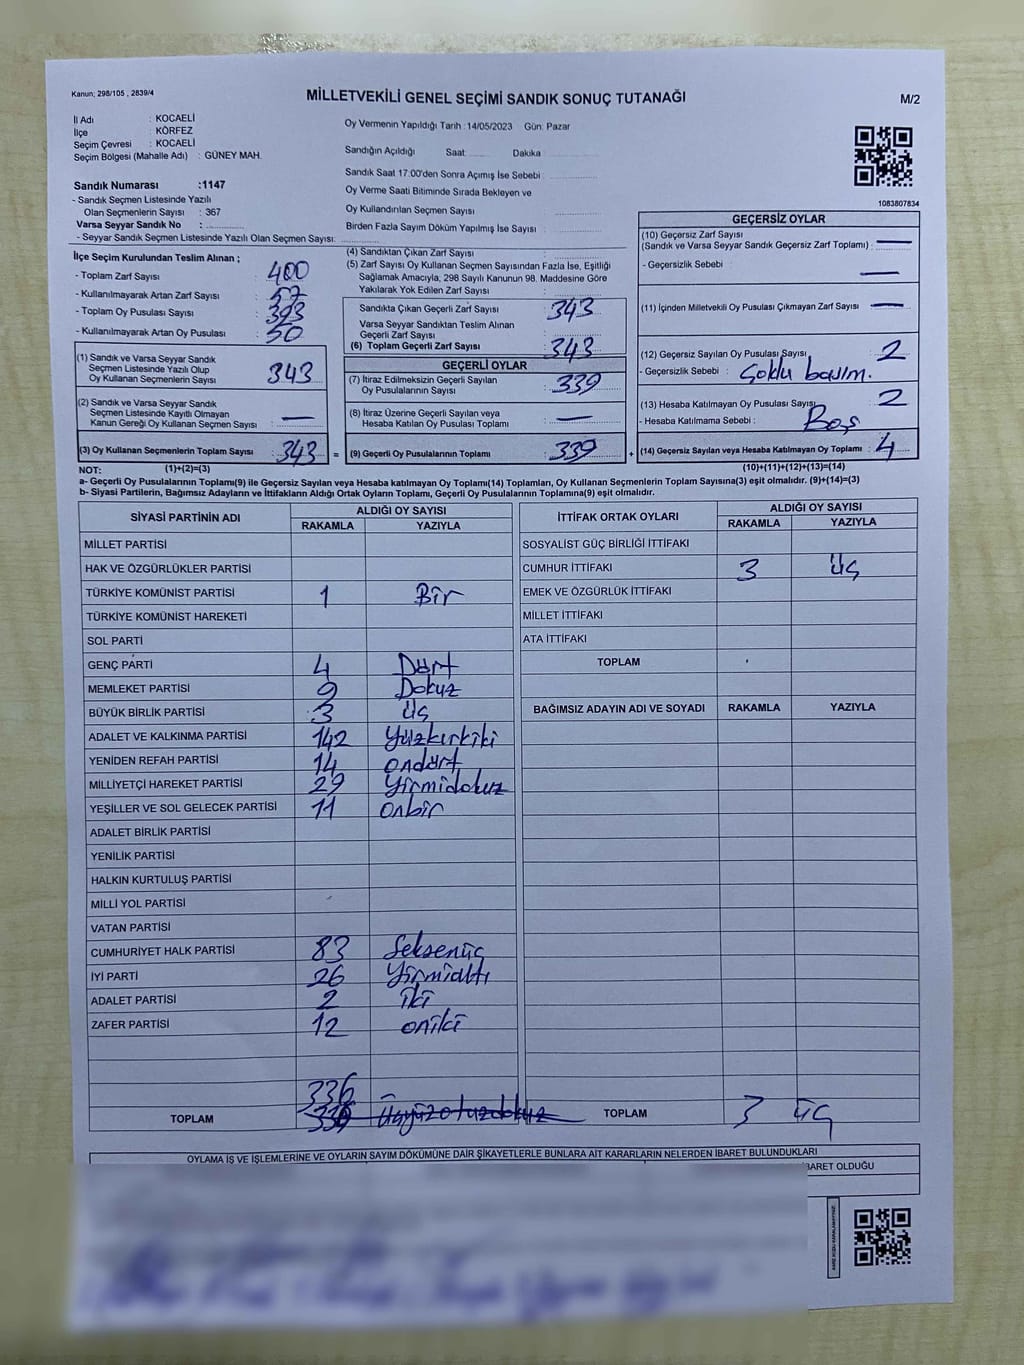 Kanun; 298/105 , 2839/4
MİLLETVEKİLİ GENEL SEÇİMİ SANDIK SONUÇ TUTANAĞI
M/2
İl Adı : KOCAELİ
İlçe : KÖRFEZ
Seçim Çevresi : KOCAELİ
Seçim Bölgesi (Mahalle Adı) : GÜNEY MAH.
Sandık Numarası :1147
- Sandık Seçmen Listesinde Yazılı
Olan Seçmenlerin Sayısı : 367
Varsa Seyyar Sandık No :
- Seyyar Sandık Seçmen Listesinde Yazılı Olan Seçmen Sayısı:
Oy Vermenin Yapıldığı Tarih :14/05/2023 Gün: Pazar
Sandığın Açıldığı Saat Dakika
Sandık Saat 17:00'den Sonra Açımış İse Sebebi :
Oy Verme Saati Bitiminde Sırada Bekleyen ve
Oy Kullandırılan Seçmen Sayısı
Birden Fazla Sayım Döküm Yapılmış İse Sayısı :
1083807834
İlçe Seçim Kurulundan Teslim Alınan ;
- Toplam Zarf Sayısı : 400
- Kullanılmayarak Artan Zarf Sayısı : 57
- Toplam Oy Pusulası Sayısı : 393
- Kullanılmayarak Artan Oy Pusulası : 50
(1) Sandık ve Varsa Seyyar Sandık
Seçmen Listesinde Yazılı Olup
Oy Kullanan Seçmenlerin Sayısı : 343
(2) Sandık ve Varsa Seyyar Sandık
Seçmen Listesinde Kayıtlı Olmayan
Kanun Gereği Oy Kullanan Seçmen Sayısı : —
(3) Oy Kullanan Seçmenlerin Toplam Sayısı : 343 =
(4) Sandıktan Çıkan Zarf Sayısı :
(5) Zarf Sayısı Oy Kullanan Seçmen Sayısından Fazla İse, Eşitliği
Sağlamak Amacıyla, 298 Sayılı Kanunun 98. Maddesine Göre
Yakılarak Yok Edilen Zarf Sayısı :
Sandıkta Çıkan Geçerli Zarf Sayısı : 343
Varsa Seyyar Sandıktan Teslim Alınan
Geçerli Zarf Sayısı :
(6) Toplam Geçerli Zarf Sayısı : 343
GEÇERLİ OYLAR
(7) İtiraz Edilmeksizin Geçerli Sayılan
Oy Pusulalarının Sayısı : 339
(8) İtiraz Üzerine Geçerli Sayılan veya
Hesaba Katılan Oy Pusulası Toplamı : —
(9) Geçerli Oy Pusulalarının Toplamı : 339 +
GEÇERSİZ OYLAR
(10) Geçersiz Zarf Sayısı
(Sandık ve Varsa Seyyar Sandık Geçersiz Zarf Toplamı) : —
- Geçersizlik Sebebi : —
(11) İçinden Milletvekili Oy Pusulası Çıkmayan Zarf Sayısı : —
(12) Geçersiz Sayılan Oy Pusulası Sayısı : 2
- Geçersizlik Sebebi : Çoklu basım.
(13) Hesaba Katılmayan Oy Pusulası Sayısı : 2
- Hesaba Katılmama Sebebi : Boş
(14) Geçersiz Sayılan veya Hesaba Katılmayan Oy Toplamı : 4
NOT: (1)+(2)=(3) (10)+(11)+(12)+(13)=(14)
a- Geçerli Oy Pusulasının Toplamı(9) ile Geçersiz Sayılan veya Hesaba katılmayan Oy Toplamı(14) Toplamları, Oy Kullanan Seçmenlerin Toplam Sayısına(3) eşit olmalıdır. (9)+(14)=(3)
b- Siyasi Partilerin, Bağımsız Adayların ve İttifakların Aldığı Ortak Oyların Toplamı, Geçerli Oy Pusulalarının Toplamına(9) eşit olmalıdır.
SİYASİ PARTİNİN ADI ALDIĞI OY SAYISI
RAKAMLA YAZIYLA
MİLLET PARTİSİ
HAK VE ÖZGÜRLÜKLER PARTİSİ
TÜRKİYE KOMÜNİST PARTİSİ 1 Bir
TÜRKİYE KOMÜNİST HAREKETİ
SOL PARTİ
GENÇ PARTİ 4 Dört
MEMLEKET PARTİSİ 9 Dokuz
BÜYÜK BİRLİK PARTİSİ 3 üç
ADALET VE KALKINMA PARTİSİ 142 yüzkırkiki
YENİDEN REFAH PARTİSİ 14 ondört
MİLLİYETÇİ HAREKET PARTİSİ 29 yirmidokuz
YEŞİLLER VE SOL GELECEK PARTİSİ 11 onbir
ADALET BİRLİK PARTİSİ
YENİLİK PARTİSİ
HALKIN KURTULUŞ PARTİSİ
MİLLİ YOL PARTİSİ
VATAN PARTİSİ
CUMHURİYET HALK PARTİSİ 83 Seksenüç
İYİ PARTİ 26 yirmialtı
ADALET PARTİSİ 2 iki
ZAFER PARTİSİ 12 oniki
336
TOPLAM 339 üçyüzotuzdokuz
İTTİFAK ORTAK OYLARI ALDIĞI OY SAYISI
RAKAMLA YAZIYLA
SOSYALİST GÜÇ BİRLİĞİ İTTİFAKI
CUMHUR İTTİFAKI 3 üç
EMEK VE ÖZGÜRLÜK İTTİFAKI
MİLLET İTTİFAKI
ATA İTTİFAKI
TOPLAM
BAĞIMSIZ ADAYIN ADI VE SOYADI RAKAMLA YAZIYLA
TOPLAM 3 üç
OYLAMA İŞ VE İŞLEMLERİNE VE OYLARIN SAYIM DÖKÜMÜNE DAİR ŞİKAYETLERLE BUNLARA AİT KARARLARIN NELERDEN İBARET BULUNDUKLARI
BARET OLDUĞU